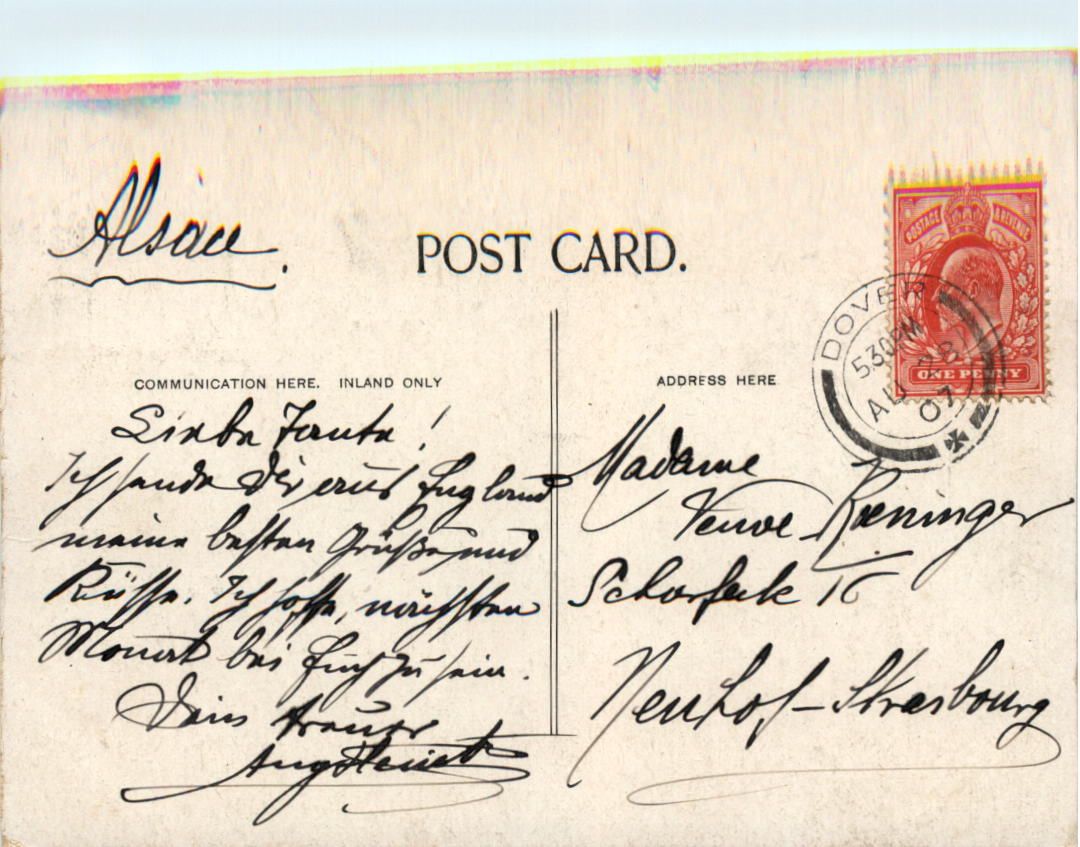 Alsace.
POST CARD.
COMMUNICATION HERE. INLAND ONLY
Liebe Tante!
Ich sende Dir aus England
meine besten Grüße und
Küsse. Ich hoffe, nächsten
Monat bei Euch zu sein.
Dein treuer
ADDRESS HERE
Madame
Veuve
Neuhof-Strasbourg
POSTAGE & REVENUE
ONE PENNY
DOVER
530PM
AU
07